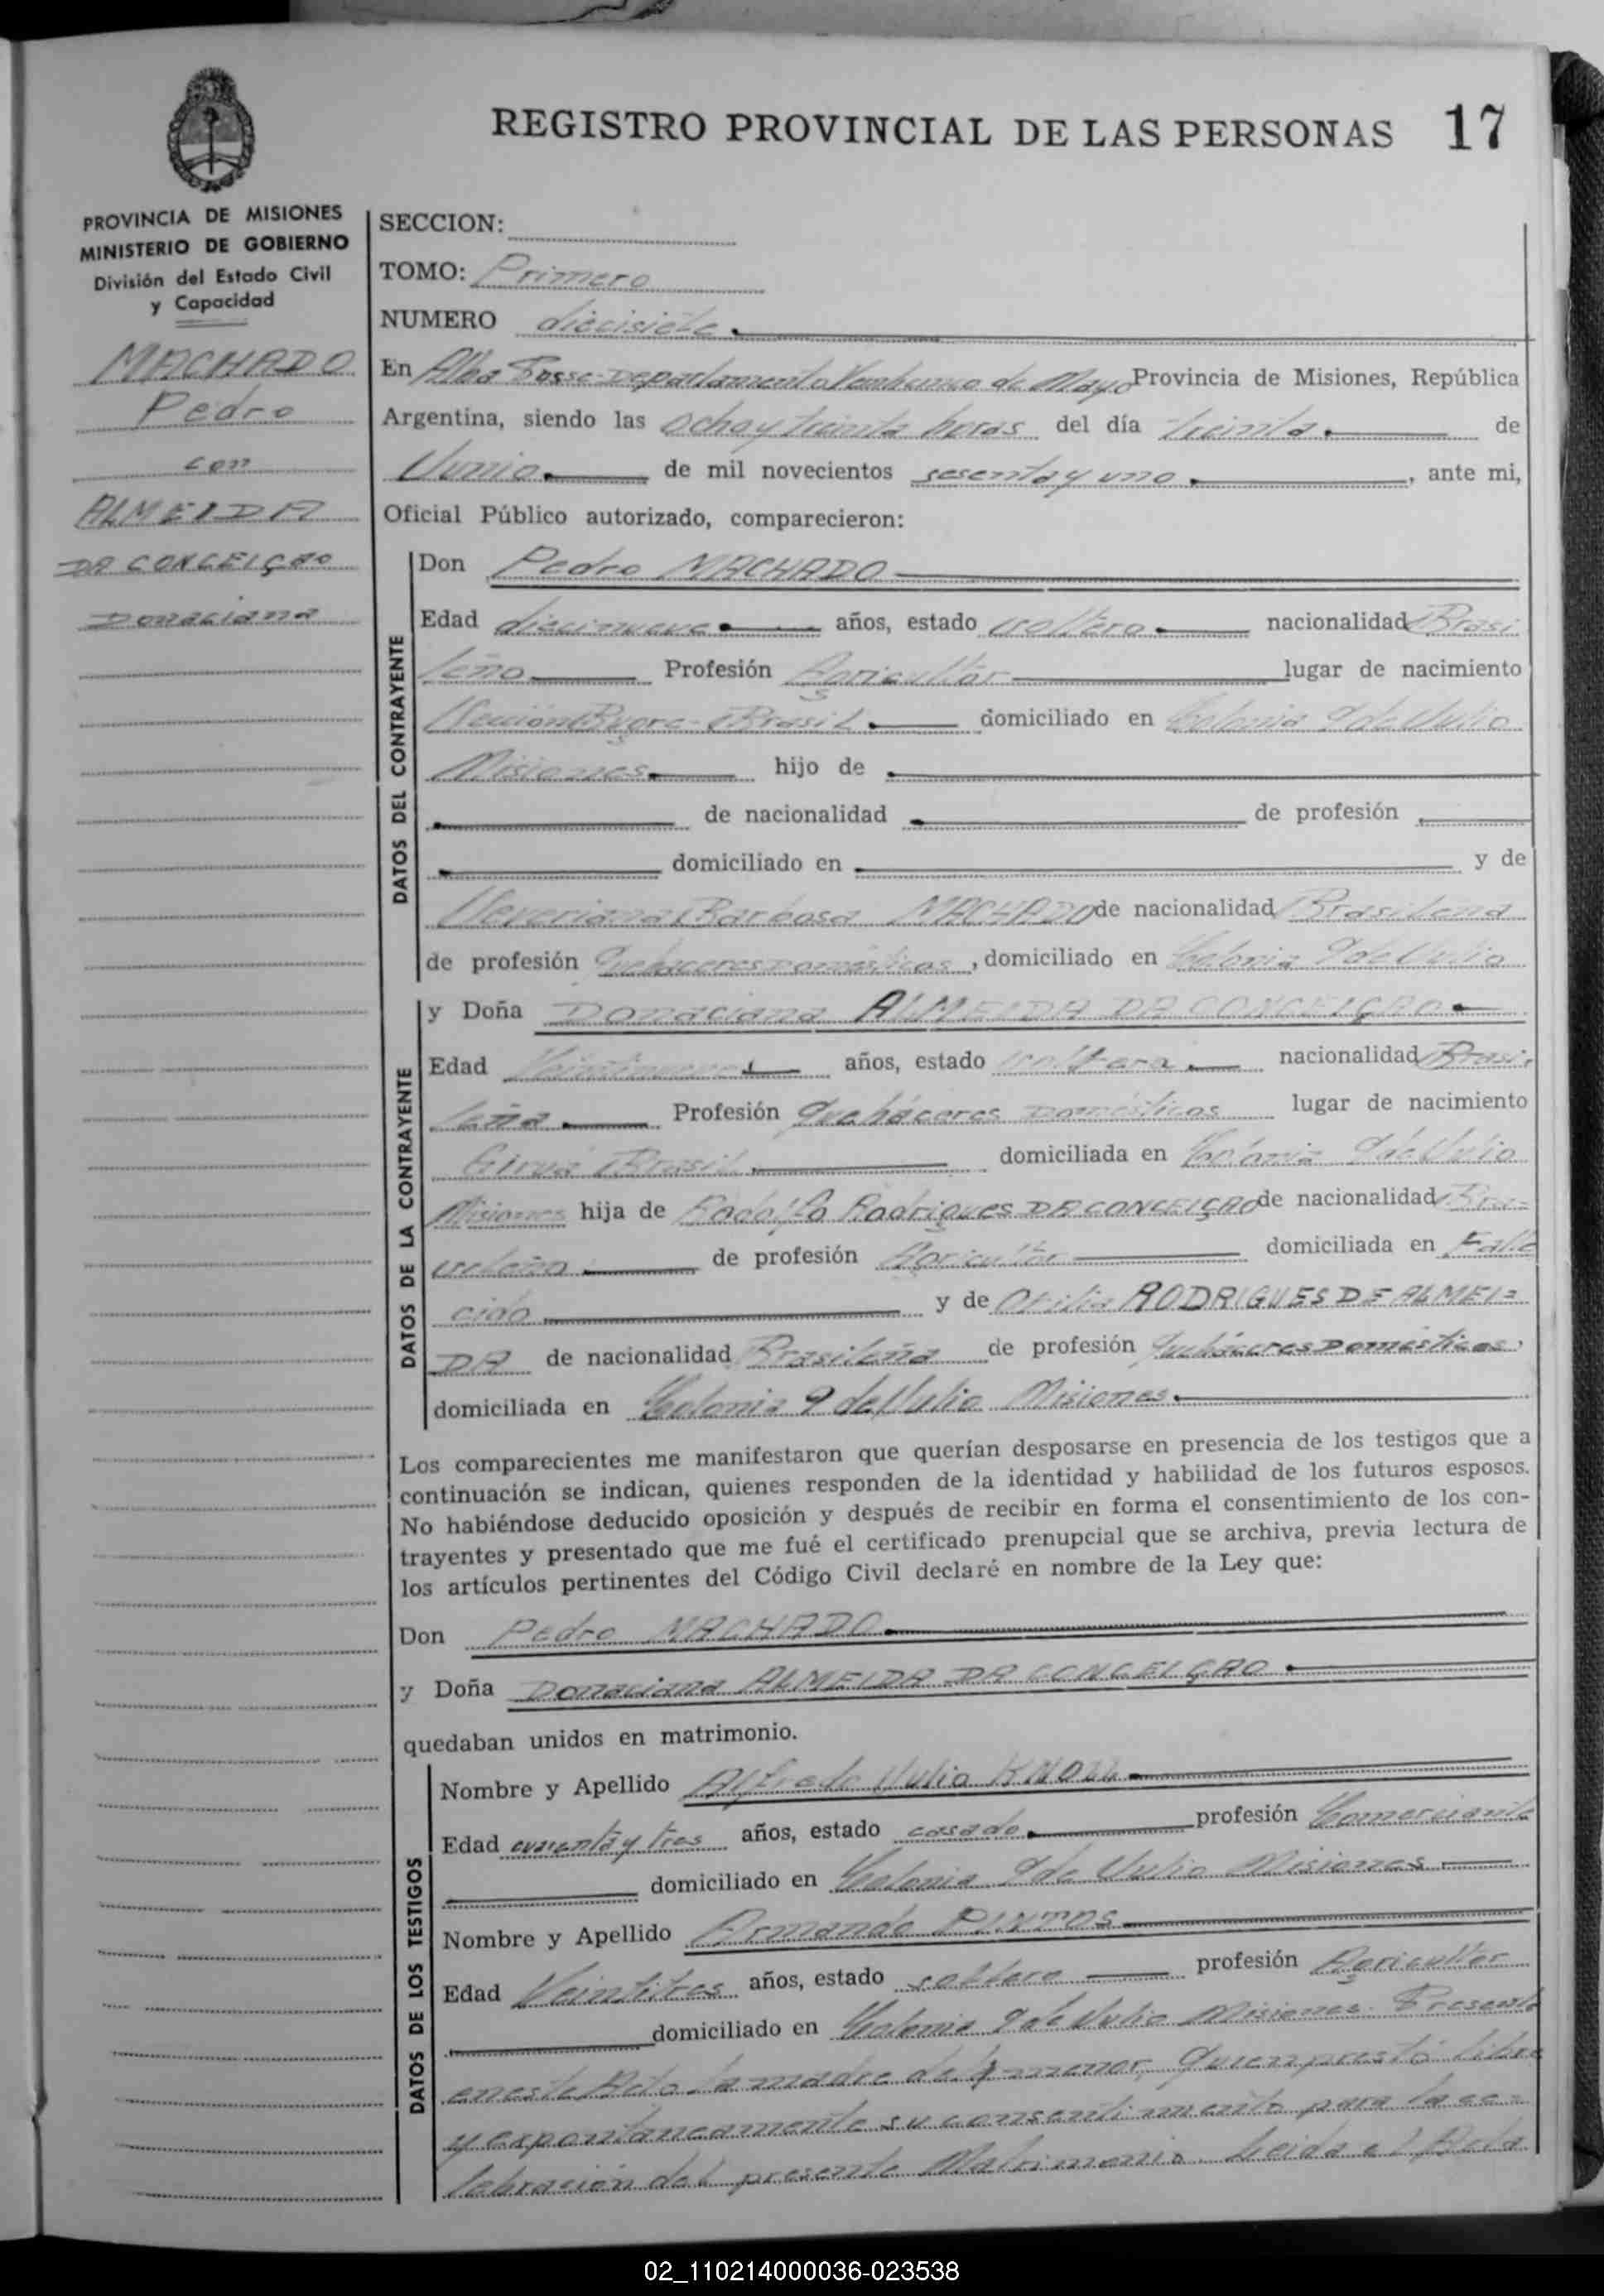 REGISTRO PROVINCIAL DE LAS PERSONAS 17
PROVINCIA DE MISIONES
MINISTERIO DE GOBIERNO
División del Estado Civil
y Capacidad
MACHADO
Pedro
con
ALMEIDA
DA CONCEIÇAO
Donaciana
SECCION:
TOMO: Primero
NUMERO diecisiete
En Alba Posse - Departamento Veinticinco de Mayo Provincia de Misiones, República
Argentina, siendo las ocho y treinta horas del día treinta de
Junio de mil novecientos sesenta y uno, ante mi,
Oficial Público autorizado, comparecieron:
DATOS DEL CONTRAYENTE
Don Pedro MACHADO
Edad diecinueve años, estado soltero nacionalidad Brasi
leño Profesión Agricultor lugar de nacimiento
Brasil domiciliado en Colonia 9 de Julio
Misiones hijo de
de nacionalidad de profesión
domiciliado en y de
Barbosa MACHADO de nacionalidad Brasilena
de profesión Quehaceres Domésticos, domiciliado en Colonia 9 de Julio
DATOS DE LA CONTRAYENTE
y Doña Donaciana ALMEIDA DA CONCEIÇAO
Edad años, estado soltera nacionalidad Brasi-
leña Profesión Quehaceres Domésticos lugar de nacimiento
Giruá Brasil domiciliada en Colonia 9 de Julio
Misiones hija de Rodolfo Rodrigues DA CONCEIÇAO de nacionalidad Bra=
sileño de profesión Agricultor domiciliada en Falle
cido y de Otilia RODRIGUES DE ALMEI=
DA de nacionalidad Brasileña de profesión Quehaceres Domésticos,
domiciliada en Colonia 9 de Julio Misiones
Los comparecientes me manifestaron que querían desposarse en presencia de los testigos que a
continuación se indican, quienes responden de la identidad y habilidad de los futuros esposos.
No habiéndose deducido oposición y después de recibir en forma el consentimiento de los con-
trayentes y presentado que me fué el certificado prenupcial que se archiva, previa lectura de
los artículos pertinentes del Código Civil declaré en nombre de la Ley que:
Don Pedro MACHADO
y Doña Donaciana ALMEIDA DA CONCEIÇAO
quedaban unidos en matrimonio.
DATOS DE LOS TESTIGOS
Nombre y Apellido Alfredo Julio KNOLL
Edad cuarenta y tres años, estado casado profesión Comerciante
domiciliado en Colonia 9 de Julio Misiones
Nombre y Apellido Armando
Edad Veintitres años, estado soltero profesión Agricultor
domiciliado en Colonia 9 de Julio Misiones. Presente
en este Acto la madre del menor, quien prestó libre
y expontáneamente su consentimiento para la ce=
lebración del presente Matrimonio. Leida el Acta
02_110214000036-023538